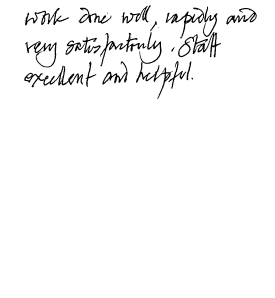 work done well, rapidly and
very satisfactorily. Staff
excellent and helpful.